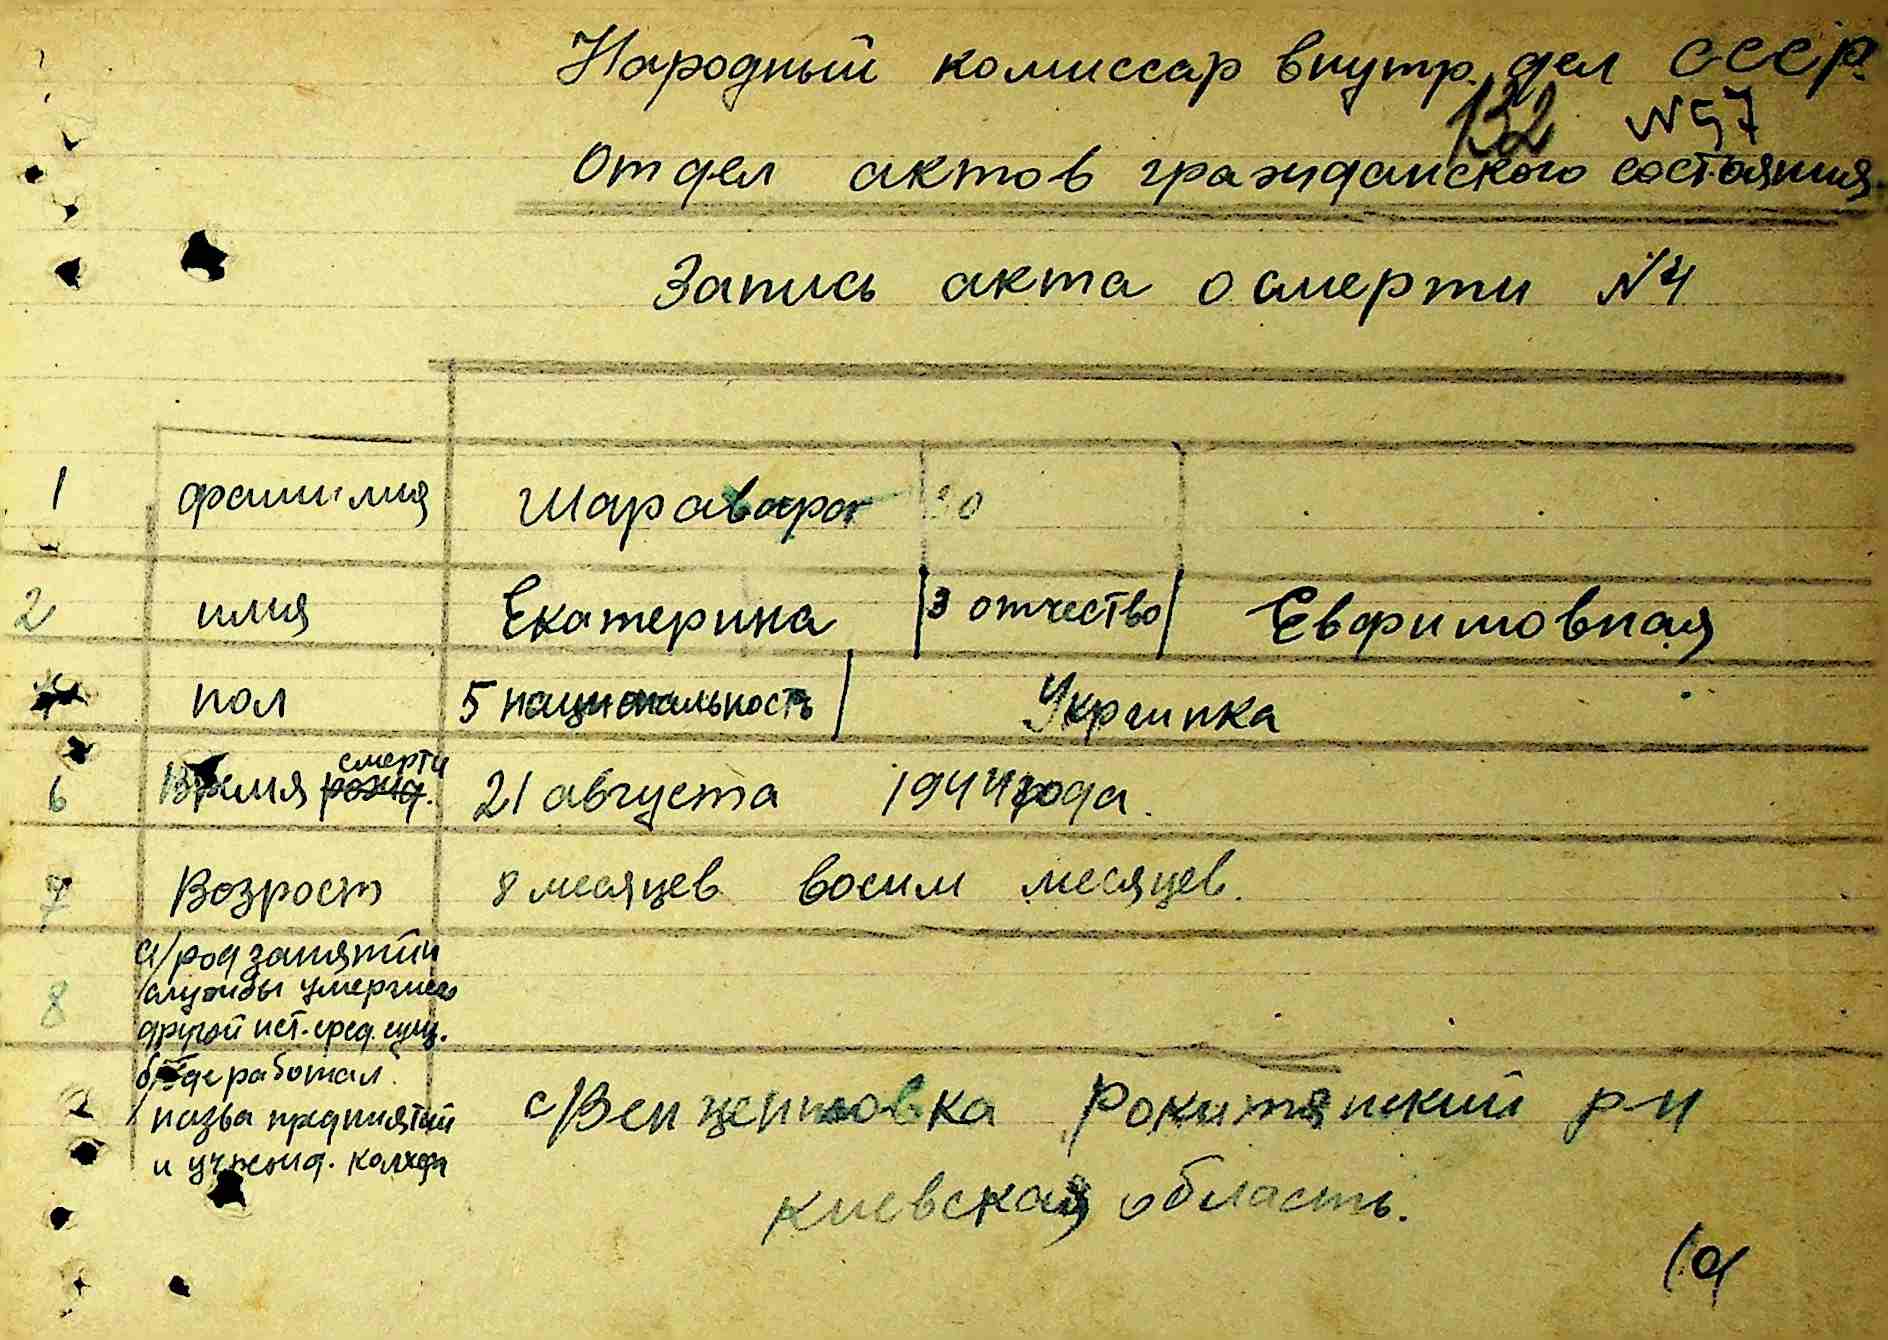 Народный комиссар внутр. дел СССР.
132 №57
Отдел актов гражданского состояния.
Запись акта о смерти №4
1 фамилия Шаравара
2 имия Екатерина 3 отчество Евфимовная
4 пол 5 национальность Украинка
6 Время рожд. смерти 21 августа 1944 года.
7 Возрост 8 месяцев восим месяцев.
а/род занятии
8 службы умершего
другой ист. сред. сущ.
б/где работал
назва предприятий с/Венцентовка Рокитянский р-н
и учрежд. колхоза
киевская область.